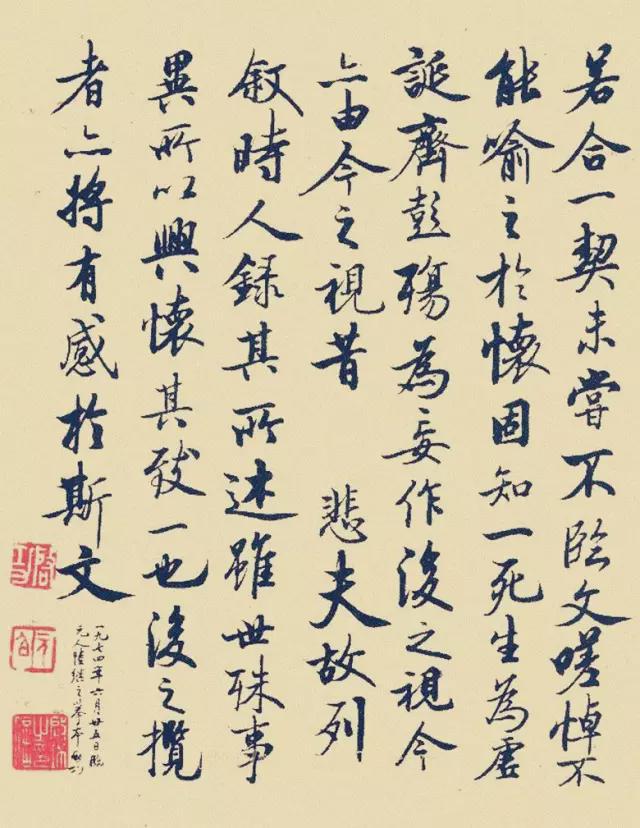 若合一契未嘗不臨文嗟悼不
能喻之於懷固知一死生為虛
誕齊彭殤為妄作後之視今
亦由今之視昔 悲夫故列
叙時人錄其所述雖世殊事
異所以興懷其致一也後之攬
者亦將有感於斯文
一九七四年六月廿五日臨
元人陸繼之摹本 啟功
啟功
元白